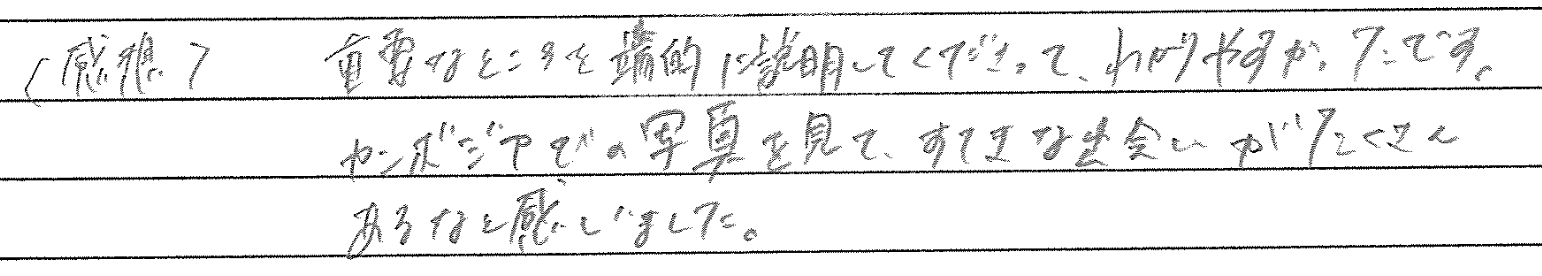 (感想) 重要なところを端的に説明してくださって、わかりやすかったです。
カンボジアでの写真を見て、すてきな出会いがたくさん
あるなと感じました。